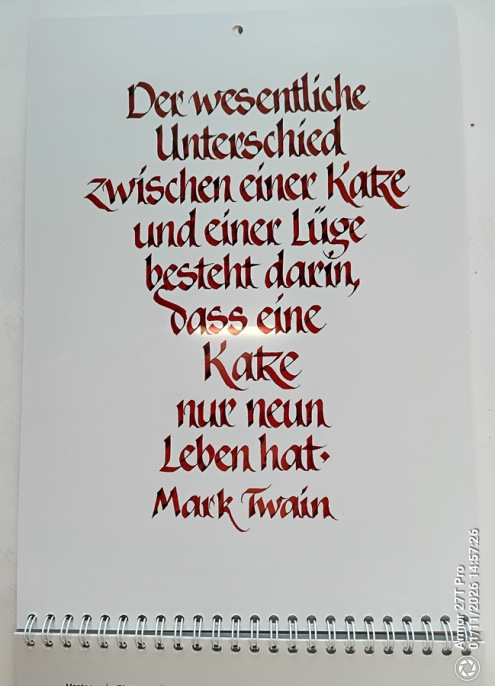 Der wesentliche
Unterschied
zwischen einer Katze
und einer Lüge
besteht darin,
dass eine
Katze
nur neun
Leben hat.
Mark Twain
Armor 27T Pro
01/11/2026 14:57:26